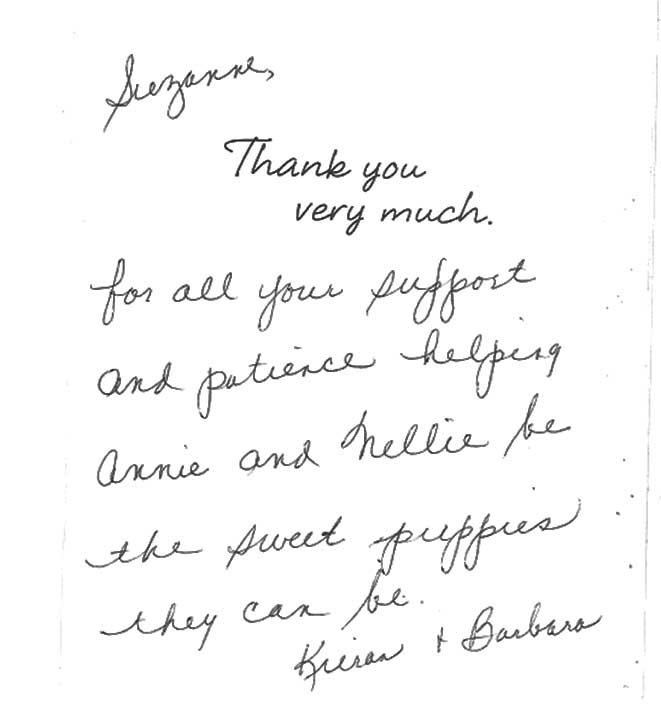 Suzanne,
Thank you
very much.
for all your support
and patience helping
Annie and Nellie be
the sweet puppies
they can be.
Kieran + Barbara